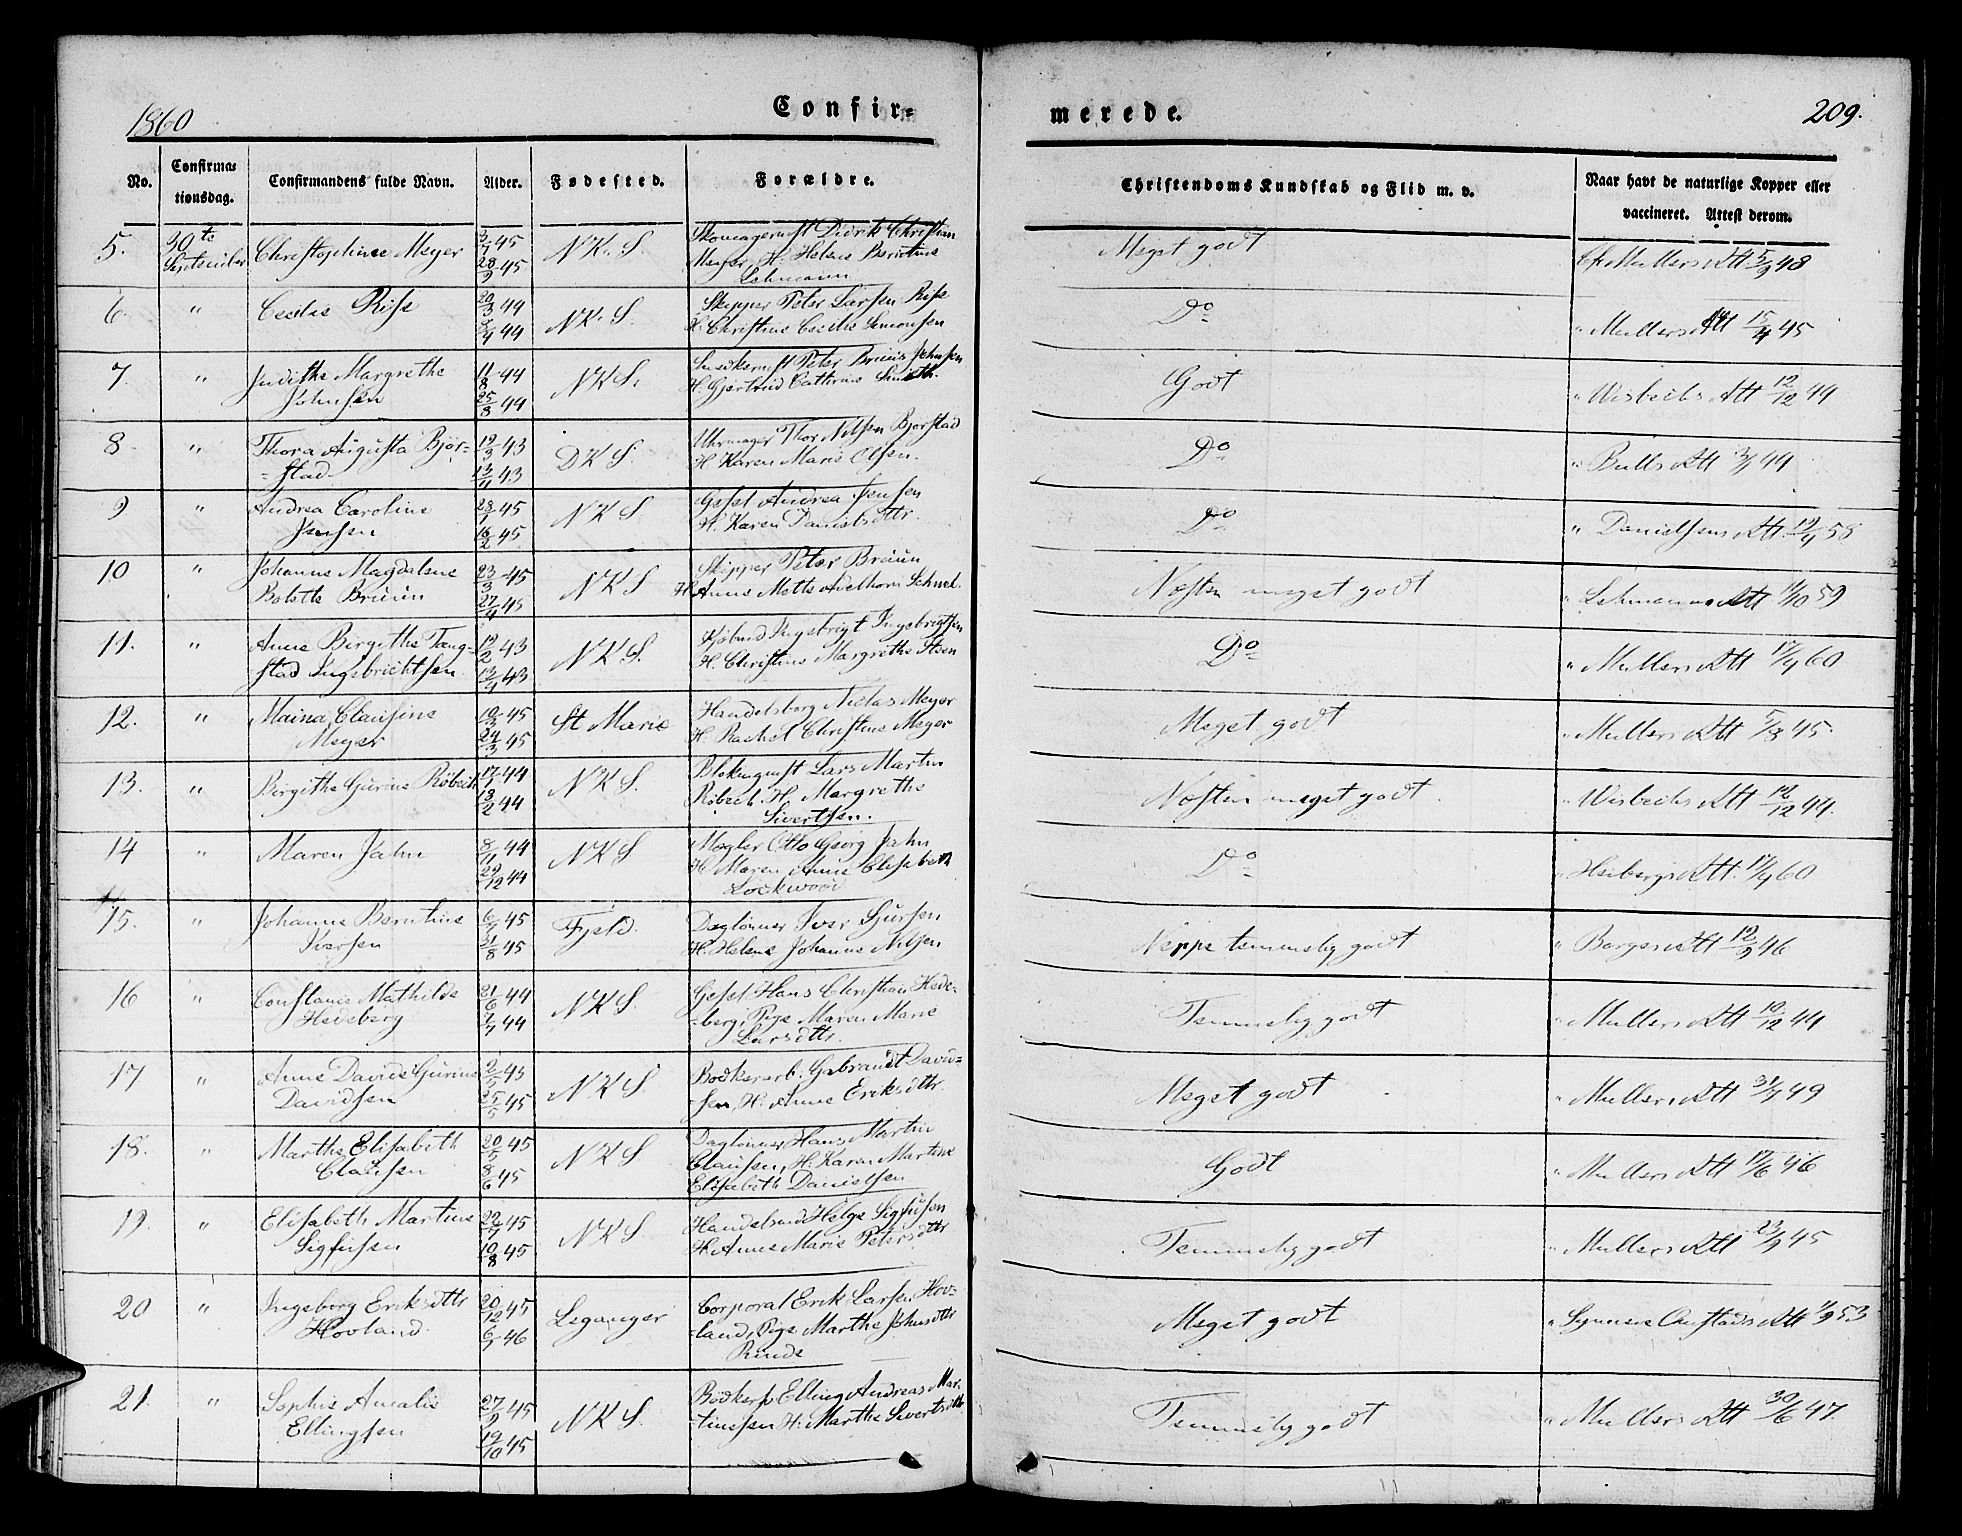 1860 Confir=
merede. 209.
No. Confirma= tionsdag. Confirmandens fulde Navn. Alder. Fødested. Forældre. Christendoms Kundskab og Flid m. v. Naar havt de naturlige Kopper eller vaccineret. Attest derom.
5. 30te September Christophine Meyer 3/7 45 28/9 45 N.K.S. Skomagermst Didrik Christian
Meyer, H. Helene Berntine
Lehmann
Meget godt Mullers Att 5/9 48
6. " Cecilie Rise 20/3 44 8/4 44 N.K.S. Skipper Peter Larsen Rise
H. Christine Cecilie Simonsen
Do " Mullers Att 15/4 45
7. " Judithe Margrethe
Johnsen
11/8 44 25/8 44 NKS. Snedkermst Peter Bruun Johnsen
H. Gjertrud Cathrine Smith.
Godt " Wisbechs Att 12/12 44
8. " Thora Augusta Bjor=
=stad
19/3 43 13/4 43 DKS. Uhrmager Thor Nilsen Bjorstad
H. Karen Marie Olsen.
Do " Bulls Att 44
9 " Andrea Caroline
Jensen
23/1 45 16/2 45 NKS. Gesel Andrea Jensen
H. Karen Danielsdttr.
Do " Danielsens Att. 19/4 58
10 " Johanne Magdalene
Bolette Bruun
23/3 45 27/4 45 NKS Skipper Peter Bruun
H. Anne Mette Schmel.
Næsten meget godt " Lehmanns Att 11/10 59
11. " Anne Birgithe Tang=
stad Ingebrichtsen
12/2 43 13/4 43 NKS. Ingebrigt Ingebrigtsen
H. Christine Margrethe Steen
Do " Mullers Att 17/4 60
12. " Maina Clausine
Meyer
10/3 45 24/3 45 St Marie Handelsborg Niclas Meyer
H. Rachel Christine Meyer
Meget godt " Mullers Att 5/8 45.
13. " Birgithe Gurine Røbech 17/1 44 8/2 44 NKS. Blokmagermst Lars Martin
Røbech H. Margrethe
Sivertsen.
Næsten meget godt. " Wisbechs Att 12/12 44.
14 " Maren Jahn 8/11 44 29/12 44 NKS. Mægler Otto Georg Jahn
H. Maren Anne Elisabeth
Lockwood
Do " Heibergs Att. 17/4 60
15. " Johanne Berntine
Iversen
6/7 45 31/8 45 Fjeld. Daglønner Iver Sjursen
H. Helene Johanne Nilsen
Neppe temmelig godt " Borgers Att 12/9 46
16 " Constance Mathilde
Hedeberg
21/6 44 7/7 44 NKS. Gesel Hans Christian Hede=
=berg, Pige Maren Marie
Larsdttr.
Temmelig godt " Mullers Att 10/12 44
17 " Anne Davide Gurine
Davidsen
2/5 45 25/5 45 NKS. Bødkerarb. Gabrandt David=
=sen, H. Anne Eriksdttr.
Meget godt " Mullers Att 31/7 49
18. " Marthe Elisabeth
Clausen
20/5 45 8/6 45 NKS Daglønner Hans Martin
Clausen, H. Karen Martine
Elisabeth Danielsen
Godt " Mullers Att 17/6 46
19. " Elisabeth Martine
Sigfusen
22/7 45 10/8 45 NKS. Handelsmd Helge Sigfusen
H. Anne Marie Petersdttr
Temmelig godt " Mullers Att 23/9 45
20 " Ingeborg Eriksdttr
Hovland.
20/12 45 6/1 46 Leganger Corporal Erik Larsen Hov=
=land, Pige Marthe Johnsdttr
Rinde
Meget godt " Att 1/9 53
21. " Sophie Amalie
Ellingsen
27/9 45 19/10 45 NKS. Bødkersv Elling Andreas Mar=
=tinssen H. Marthe Sivertsdttr.
Temmelig godt " Mullers Att 30/6 47